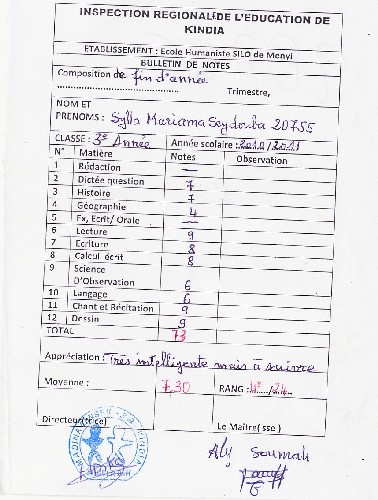 INSPECTION REGIONAL/DE L'EDUCATION DE
KINDIA
ETABLISSEMENT : Ecole Humaniste SILO de Menyi
BULLETIN DE NOTES
Composition de fin d'année
Trimestre,
NOM ET
PRENOMS : Sylla Mariama Seydouba 20755
CLASSE : 3e Année Année scolaire : 2010/2011
N° Matière Notes Observation
1 Rédaction —
2 Dictée question 7
3 Histoire 7
4 Géographie 4
5 Ex, Ecrit/ Orale —
6 Lecture 9
7 Ecriture 8
8 Calcul écrit 8
9 Science
D'Observation 6
10 Langage 6
11 Chant et Récitation 9
12 Dessin 9
TOTAL 73
Appréciation : Très intelligente mais à suivre
Moyenne : 7,30 RANG : 4e/24
Directeur(trice) Le Maître(sse)
Aly Soumah